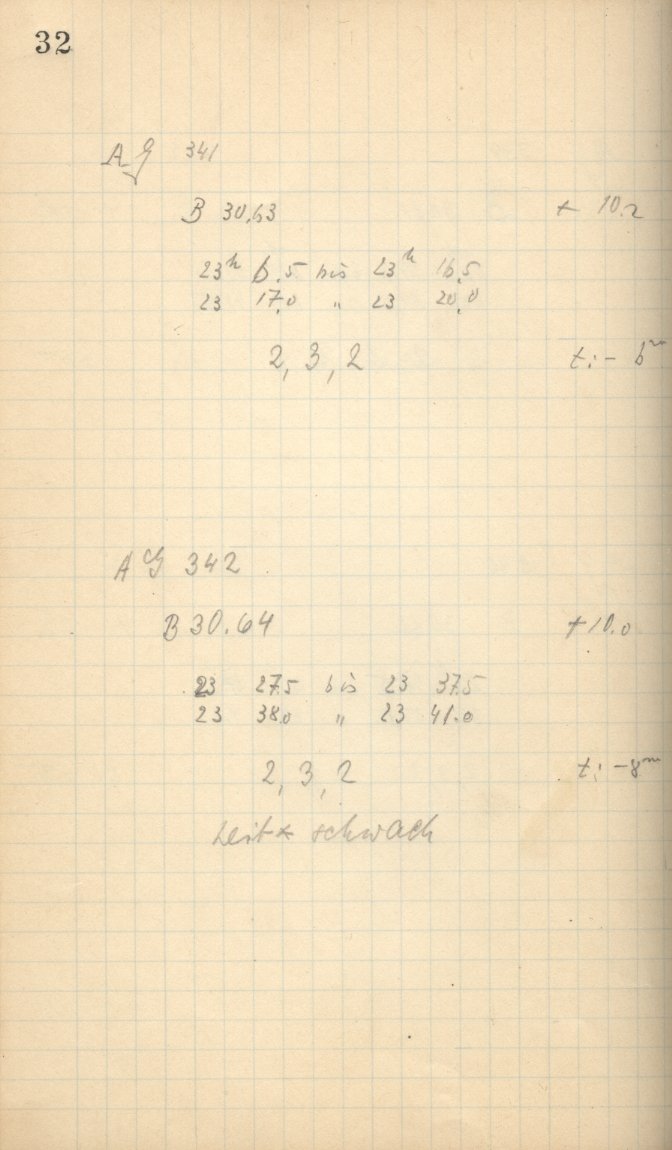 32
AG 341
B 30.63 + 10.2
23h 6.5 bis 23h 16.5
23 17.0 " 23 20.0
2, 3, 2 t: - 6m
AG 342
B 30.64 + 10.0
23 27.5 bis 23 37.5
23 38.0 " 23 41.0
2, 3, 2 t: - 8m
Leit* schwach